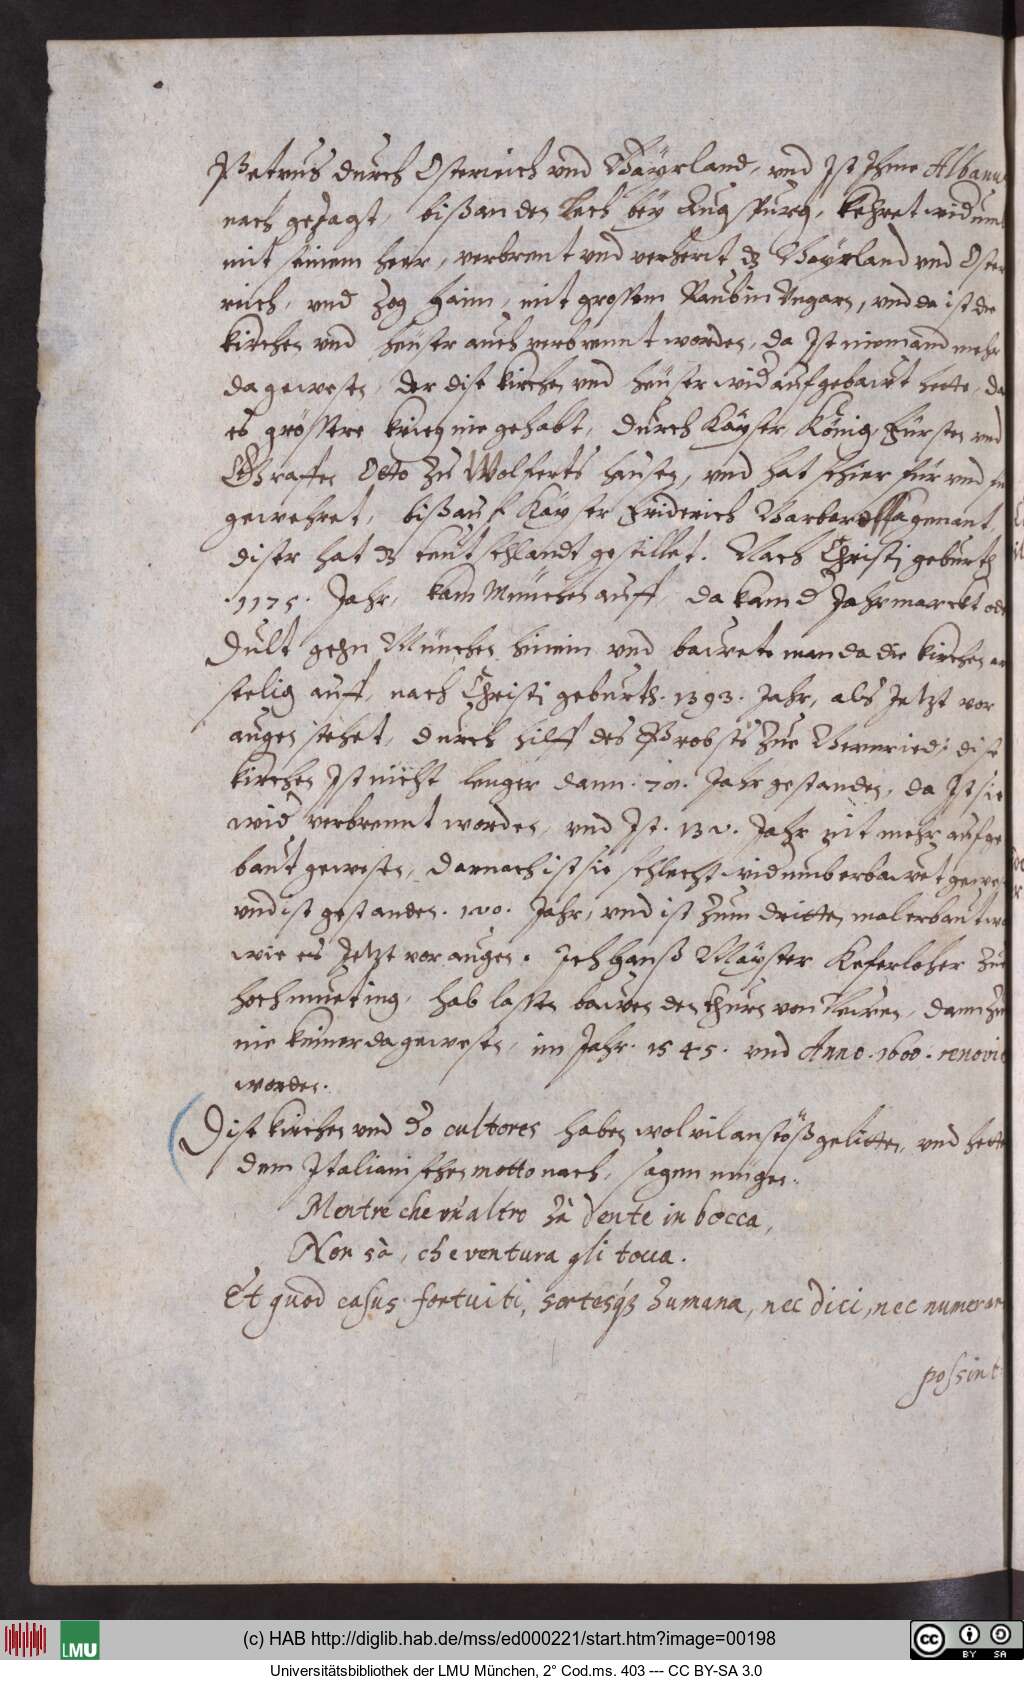 Petrus durch Osterrich vnd Bayrland, vnd Ist Ihme Albanu
nach gejagt, bißan den Lech bey Augspurg, kehret widumb
mit seinem heer, verbrent vnd verhert dz Bayrland vnd Oster
rich, vnd zog haim, mit grossem Raub in Vngarn, vnd da ist die
kirchen vnd heuser auch verbrennt worden, da Ist niemand mehr
da gewesen, der dise kirchen vnd heuser wid aufgebawt hette, da
es grössere krieg nie gehabt, durch Kayser König, Fürsten vnd
Graffen Otto zu Wolferts hausen, vnd hat schier für vnd für
gewehret, bißauf Kayser Friderich Barbarossa genant,
diser hat dz teutschlandt gestillet. Nach Christi geburth
.1175. Jahr, kam München auff, da kam d Jahrmarckt od
Dult gehn München hinein vnd bawete man da die kirchen
seelig auff, nach Christi geburth. 1393. Jahr, als Jetzt vor
augen stehet, durch hilff des Probsts zue Bernried: dise
kirchen Ist nicht lenger dann .70. Jahr gestanden, da Ist sie
wid verbrennt worden, vnd Ist. 130. Jahr nit mehr aufge
baut gewesen, darnach ist sie schlecht widumb erbawet gewe
vnd ist gestanden. 100. Jahr, vnd ist zum dritten mal erbaut wo
wie es Jetzt vor augen. Ich Hanß Mayster Keferloher zue
hochmueting, hab lassen bawen den thurn von Newen, dann zu
nie keiner da gewesen, im Jahr. 1545. vnd Anno. 1600. renovi
worden.
Dise kirchen vnd do cultores haben wol vil anstöß gelitten, vnd hett
dem Italianischen motto nach, sagen mögen.
Mentre che un altro hà dente in bocca,
Non sà, che ventura gli tocca.
Et quod casus fortuiti, sortesqz humanæ, nec dici, nec numerar
possint
(c) HAB http://diglib.hab.de/mss/ed000221/start.htm?image=00198
LMU
BY SA
Universitätsbibliothek der LMU München, 2° Cod.ms. 403 --- CC BY-SA 3.0